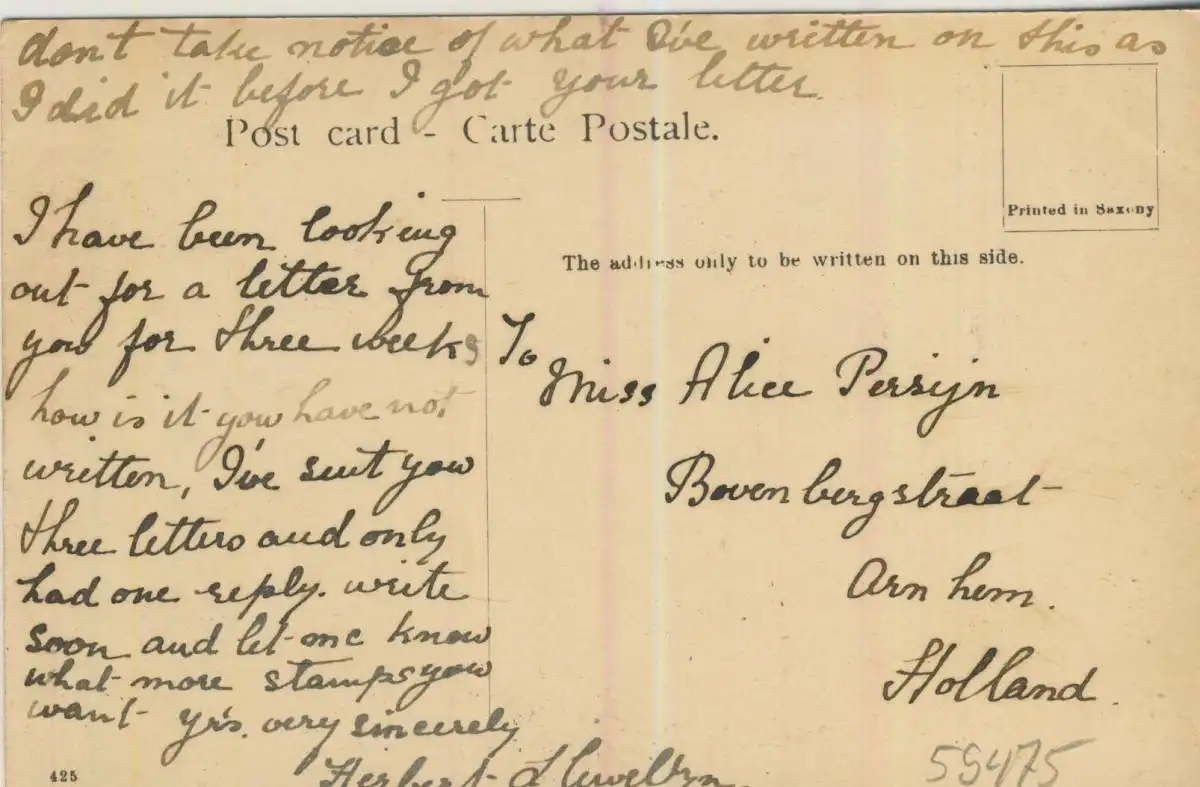 don't take notice of what I've written on this as
I did it before I got your letter.
Post card - Carte Postale.
Printed in Saxony
The address only to be written on this side.
I have been looking
out for a letter from
you for three weeks
how is it you have not
written, I've sent you
three letters and only
had one reply. write
soon and let me know
what more stamps you
want yrs. very sincerely
Herbert Llewellyn.
To
Miss Alice Persijn
Bovenbergstraat
Arnhem.
Holland.
425
59475